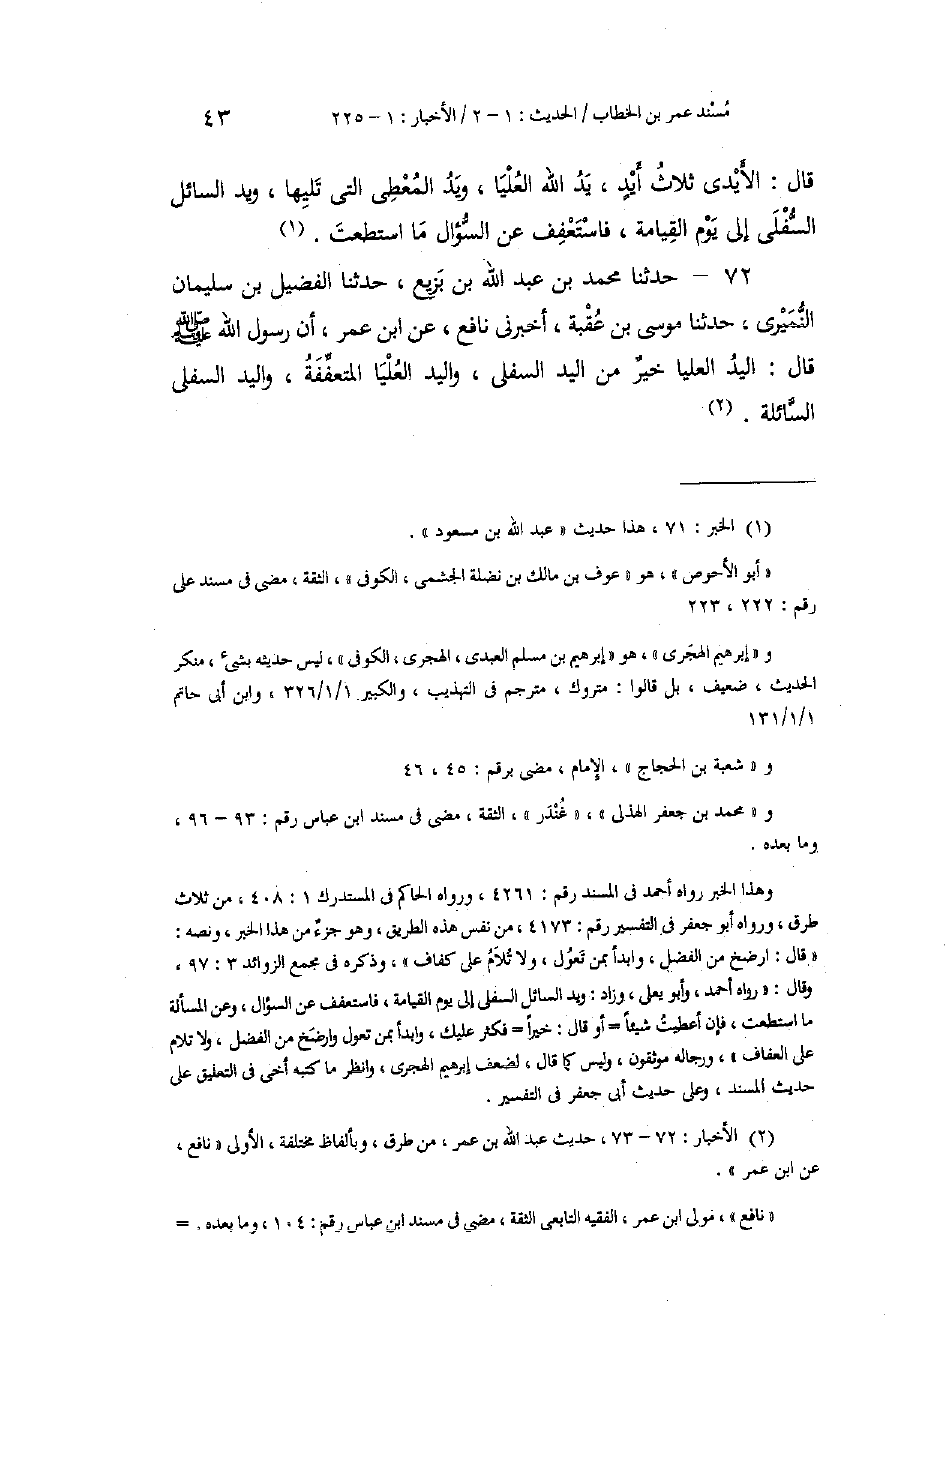 مُسْند عمر بن الخطاب / الحديث : ١ - ٢ / الأخبار : ١ - ٢٢٥ ٤٣
قال : الأَيْدى ثلاثُ أَيْدٍ ، يَدُ الله العُلْيَا ، ويَدُ المُعْطِى التى تَلِيها ، ويد السائل
السُّفْلَى إلى يَوْم القِيامة ، فاسْتَعْفِف عن السُّؤال مَا استطعتَ . (١)
٧٢ - حدثنا محمد بن عبد الله بن بَزِيع ، حدثنا الفضيل بن سليمان
النُّمَيْرى ، حدثنا موسى بن عُقْبة ، أخبرنى نافع ، عن ابن عمر ، أن رسول الله ﷺ
قال : اليدُ العليا خيرٌ من اليد السفلى ، واليد العُلْيَا المتعفِّفَةُ ، واليد السفلى
السَّائلة . (٢)
(١) الخبر : ٧١ ، هذا حديث « عبد الله بن مسعود » .
« أبو الأحوص » ، هو « عوف بن مالك بن نضلة الجشمى ، الكوفى » ، الثقة ، مضى فى مسند على
رقم : ٢٢٢ ، ٢٢٣
و « إبرهيم الهجَرى » ، هو « إبرهيم بن مسلم العبدى ، الهجرى ، الكوفى » ، ليس حديثه بشىء ، منكر
الحديث ، ضعيف ، بل قالوا : متروك ، مترجم فى التهذيب ، والكبير ٣٢٦/١/١ ، وابن أبى حاتم
١٣١/١/١
و « شعبة بن الحجاج » ، الإمام ، مضى برقم : ٤٥ ، ٤٦
و « محمد بن جعفر الهذلى » ، « غُنْدَر » ، الثقة ، مضى فى مسند ابن عباس رقم : ٩٣ - ٩٦ ،
وما بعده .
وهذا الخبر رواه أحمد فى المسند رقم : ٤٢٦١ ، ورواه الحاكم فى المستدرك ١ : ٤٠٨ ، من ثلاث
طرق ، ورواه أبو جعفر فى التفسير رقم : ٤١٧٣ ، من نفس هذه الطريق ، وهو جزءٌ من هذا الخبر ، ونصه :
« قال : ارضخ من الفضل ، وابدأ بمن تعُول ، ولا تُلَامُ على كفاف » ، وذكره فى مجمع الزوائد ٣ : ٩٧ ،
وقال : « رواه أحمد ، وأبو يعلى ، وزاد : ويد السائل السفلى إلى يوم القيامة ، فاستعفف عن السؤال ، وعن المسألة
ما استطعت ، فإن أعطيتُ شيئاً = أو قال : خيراً = فكثر عليك ، وابدأ بمن تعول وارضَخ من الفضل ، ولا تلام
على العفاف » ، ورجاله موثقون ، وليس كما قال ، لضعف إبرهيم الهجرى ، وانظر ما كتبه أخى فى التعليق على
حديث المسند ، وعلى حديث أبى جعفر فى التفسير .
(٢) الأخبار : ٧٢ - ٧٣ ، حديث عبد الله بن عمر ، من طرق ، وبألفاظ مختلفة ، الأولى « نافع ،
عن ابن عمر » .
« نافع » ، مولى ابن عمر ، الفقيه التابعى الثقة ، مضى فى مسند ابن عباس رقم : ١٠٤ ، وما بعده . =